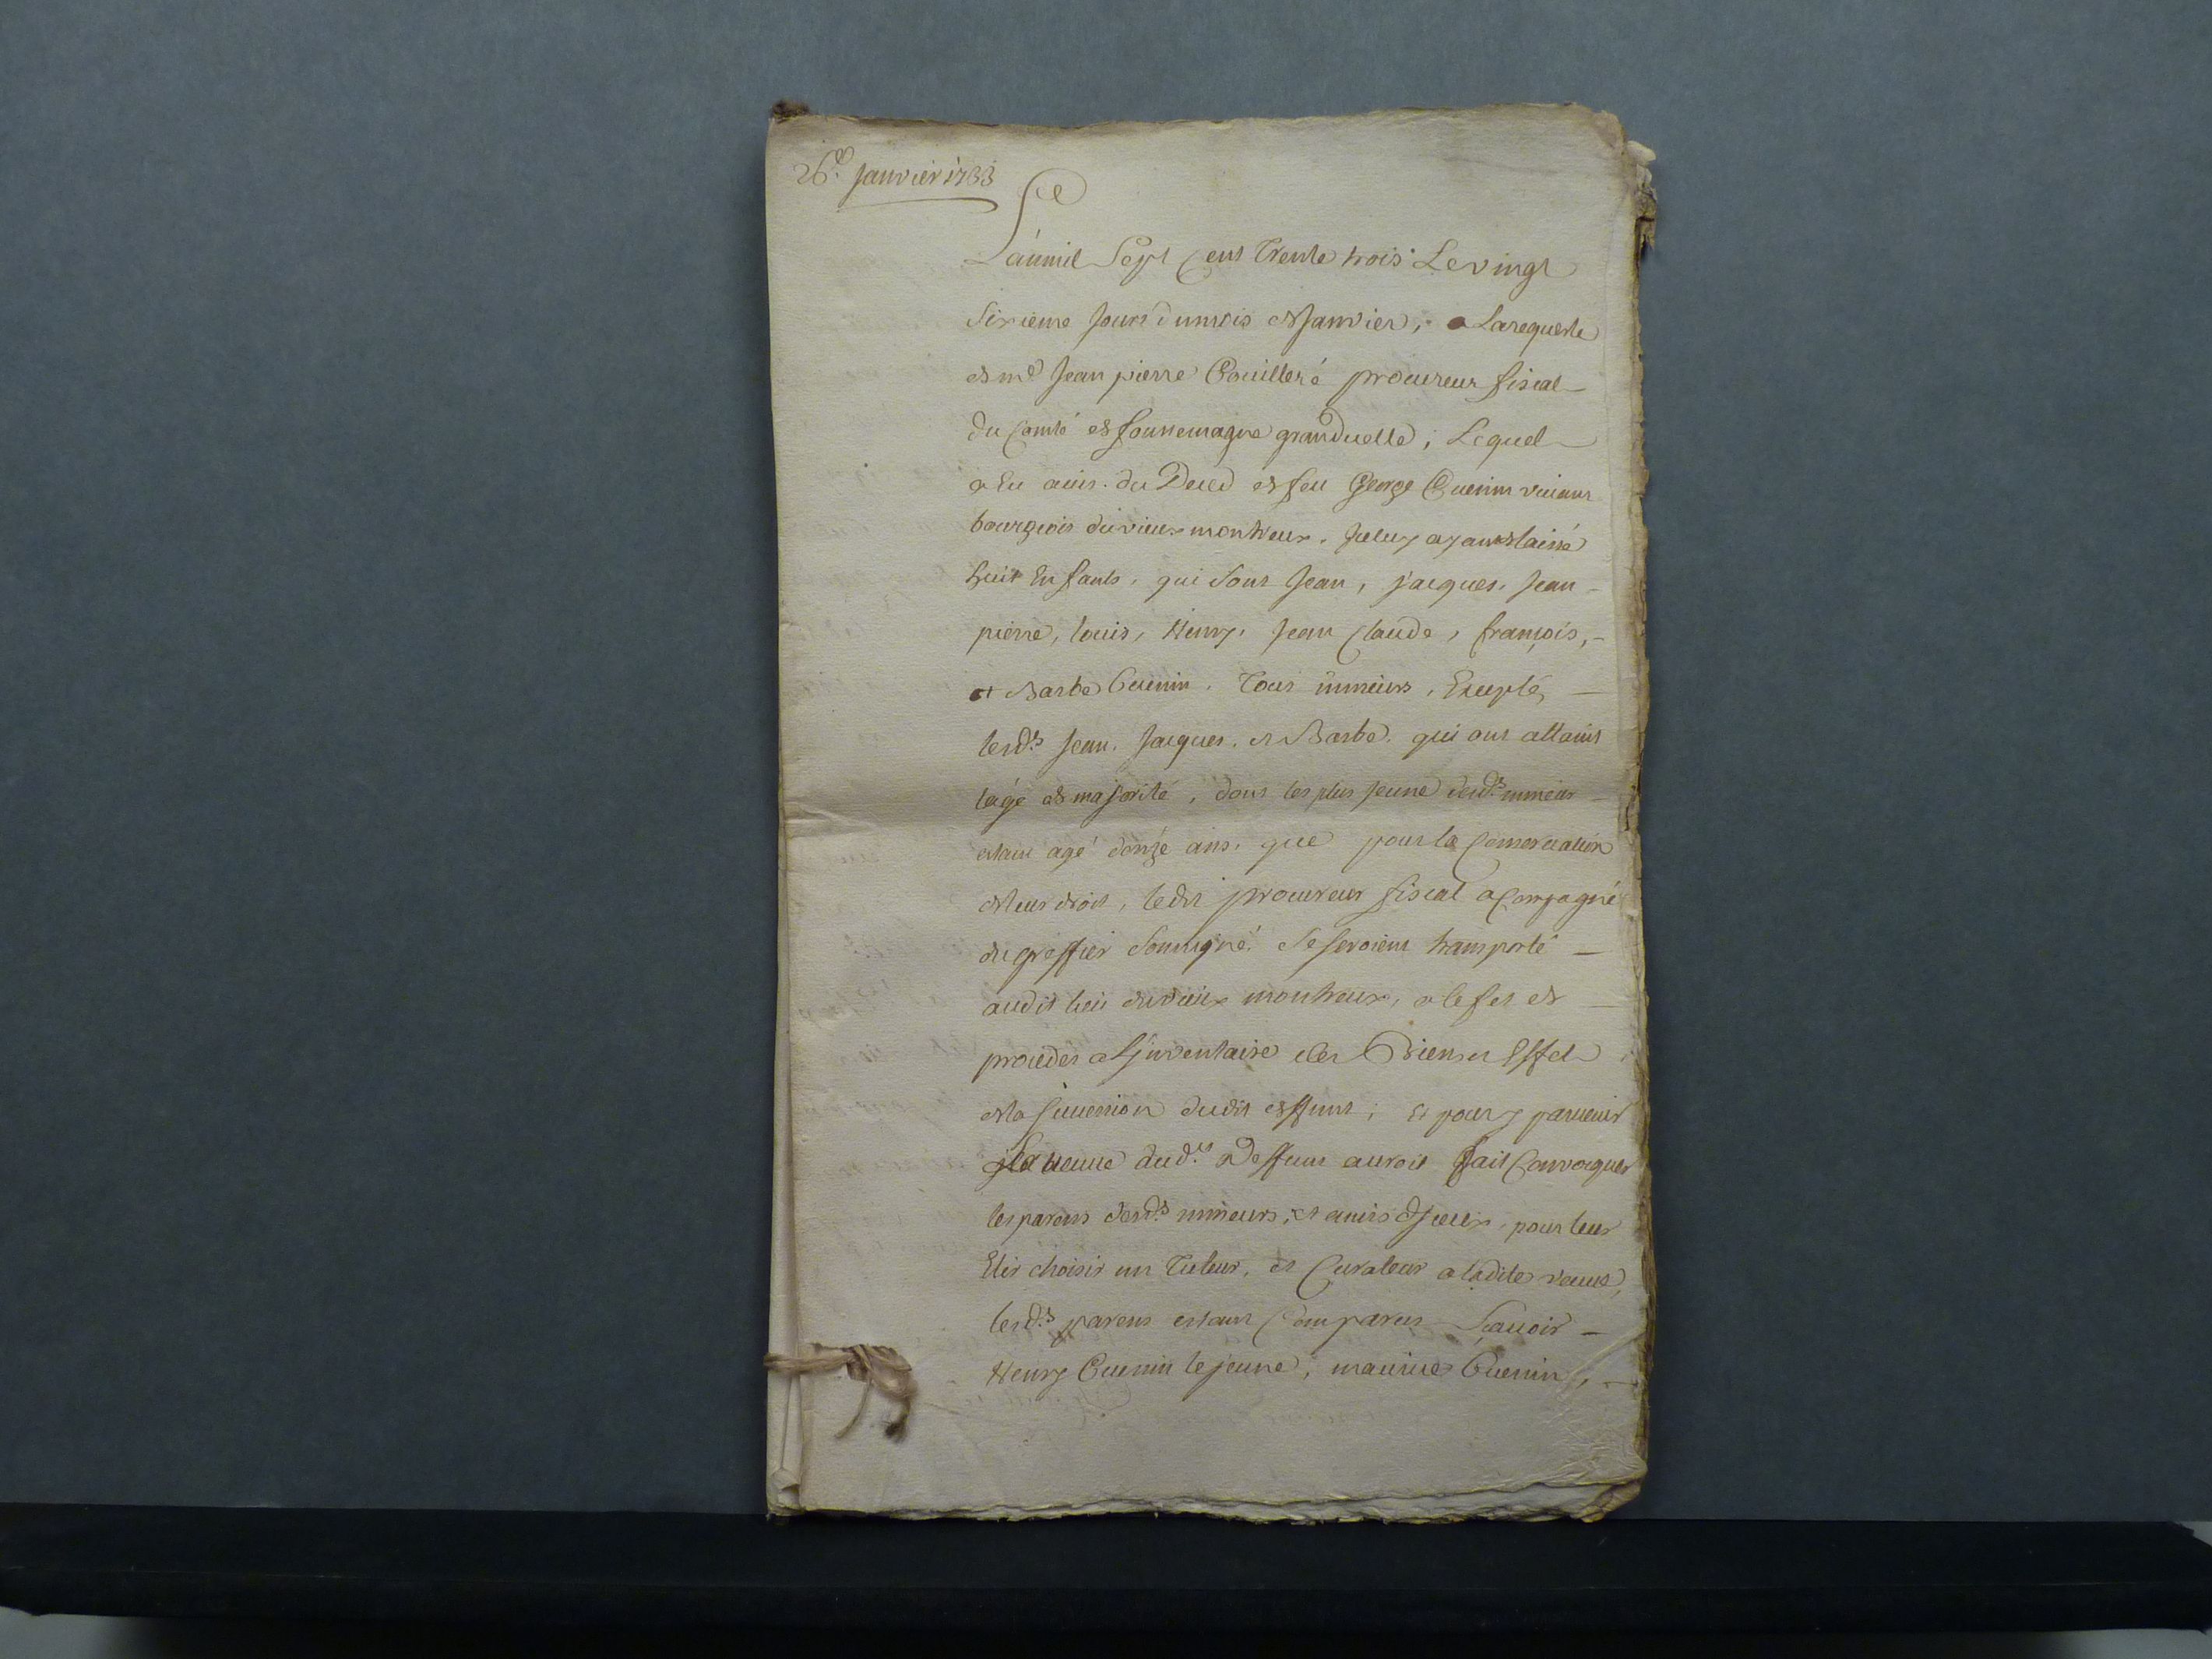 26.e janvier 1733
L'an mil Sept Cent Trente trois Le vingt
Sixieme jour du mois de Janvier, a La requeste
de me Jean pierre Couilleré procureur fiscal
du Comté de foussemagne granduelle, Lequel
a Eu avis du Deced de feu George Guenin vivant
bourgeois du vieux montreux, Iceluy ayant laissé
huit Enfants, qui sont Jean, jacques, Jean
pierre, louis, Henry, Jean Claude, françois,
et Barbe Guenin, Tous mineurs, Excepté
lesd.s Jean, Jacques, et Barbe, qui ont attaint
lage de majorité, dont les plus jeune desd.s mineur
estant agé donze ans, que pour la Conservation
de leur droit, ledit procureur fiscal acompagné
du greffier soussigné, se seroient transporté
audit lieu du vieux montreux, a lefet de
proceder a Linventaire des Biens et Effet
de la succession dudit deffunt; Et pour y parvenir
La veuve dud.t Deffunt auroit fait Convoquer
les parens desd.s mineurs, et amis d'Iceux, pour leur
Elir choisir un Tuteur, et Curateur a ladite veuve,
lesd.s parens estant Comparus Sçavoir
Henry Guenin le jeune, maurice Guenin,